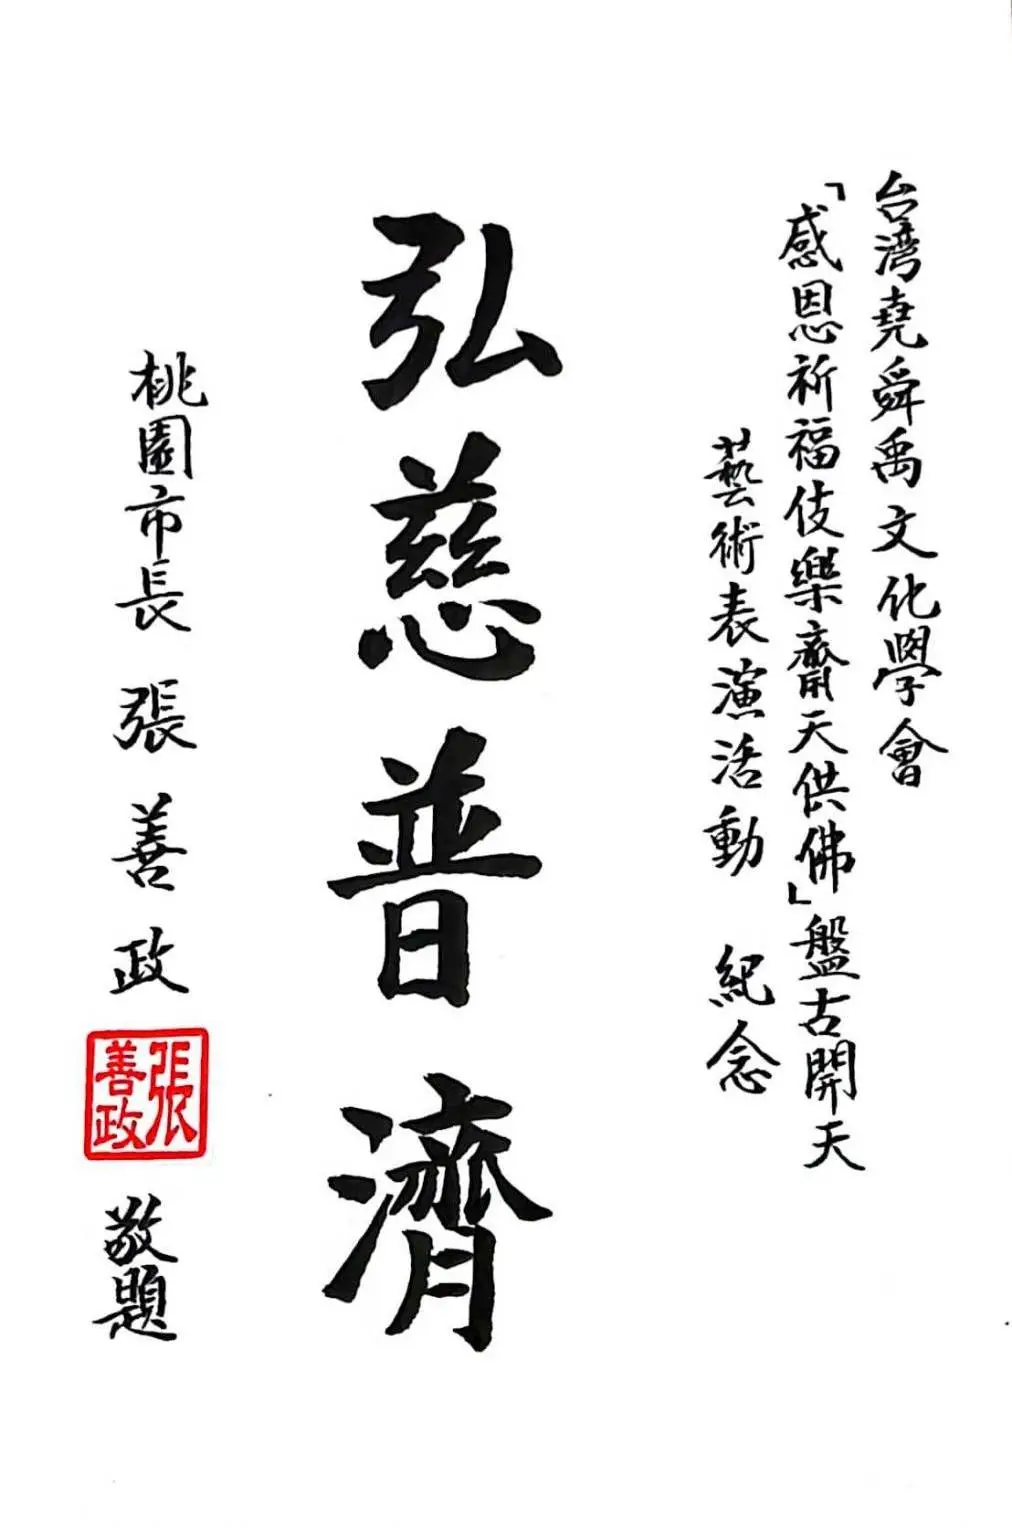 台湾堯舜禹文化學會
「感恩祈福伎樂齋天供佛」盤古開天
藝術表演活動 紀念
弘慈普濟
桃園市長 張善政
張善政
敬題